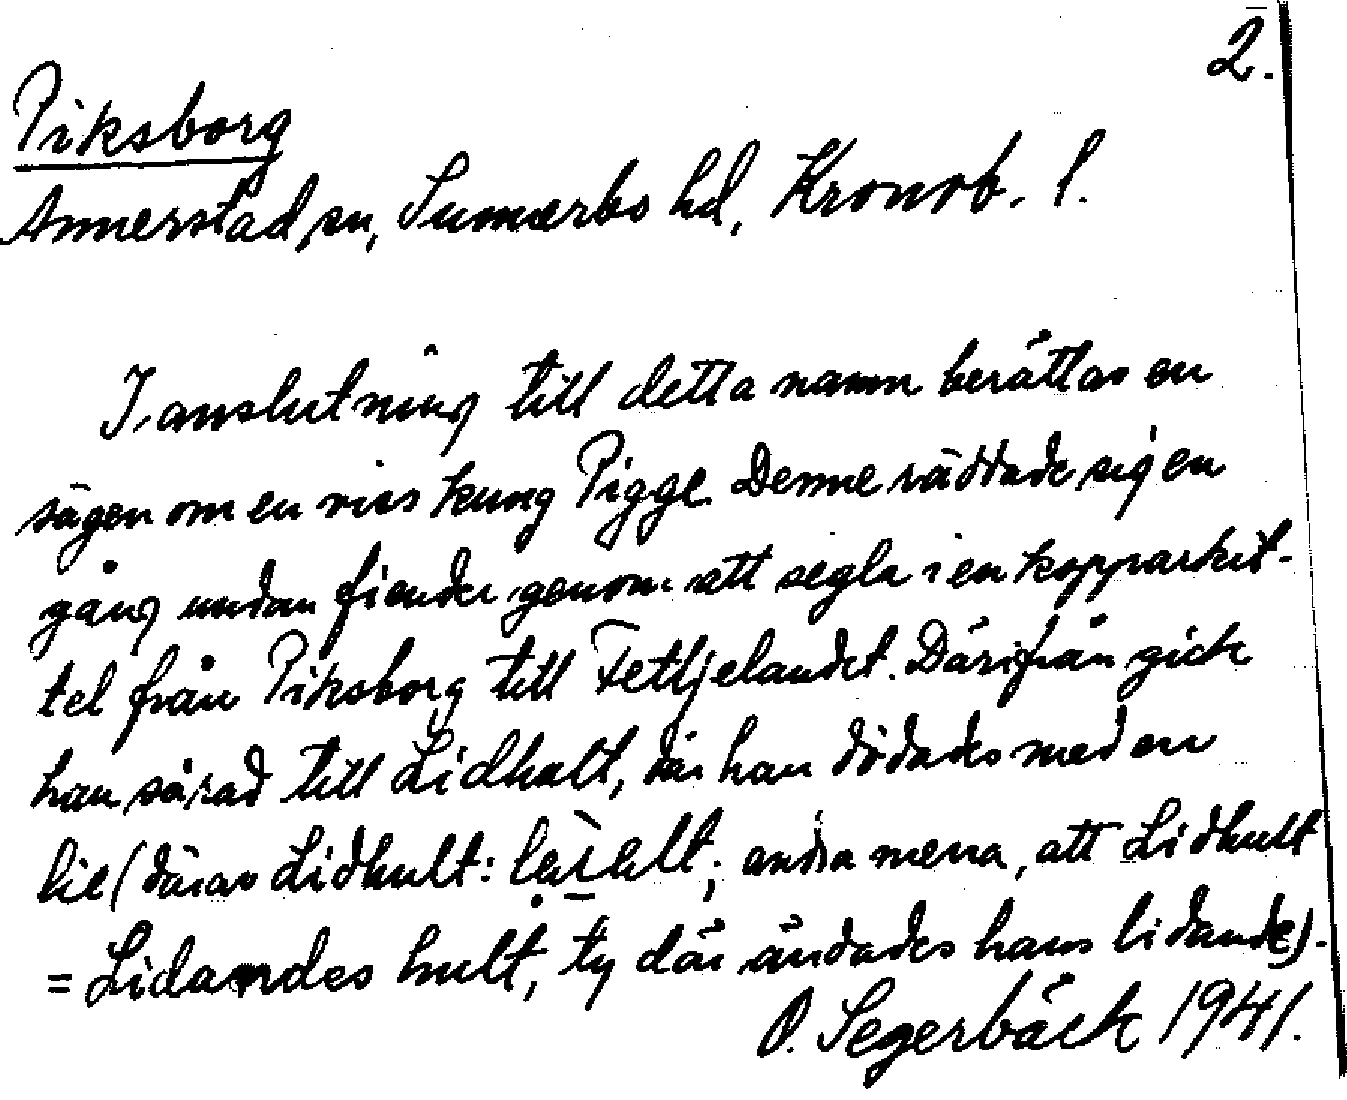 2.
Piksborg
Annerstad sn, Sunnerbo hd, Kronob. l.
I anslutning till detta namn berättas en
sägen om en viss kung Pigge. Denne räddade sig en
gång undan fiender genom att segla i en kopparkit-
tel från Piksborg till Fetljelandet. Därifrån gick
han sårad till Lidhult, där han dödades med en
lie (därav Lidhult: ; andra mena, att Lidhult
= Lidandes hult, ty där ändades hans lidande).
O. Segerbäck 1941.